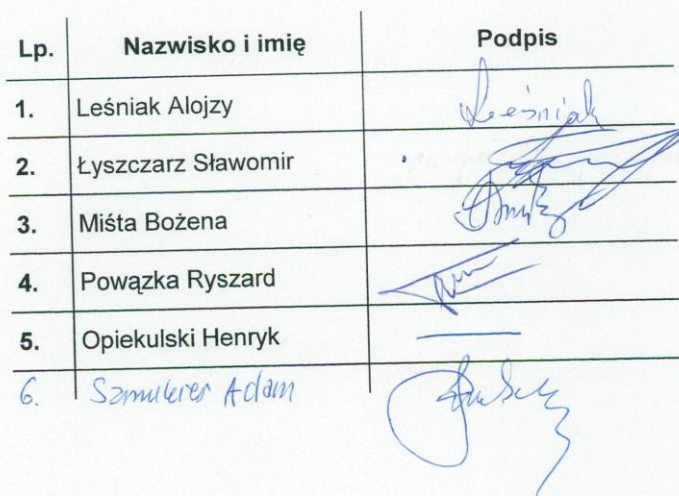 Lp. Nazwisko i imię Podpis
1. Leśniak Alojzy Leśniak
2. Łyszczarz Sławomir
3. Miśta Bożena
4. Powązka Ryszard
5. Opiekulski Henryk —
6. Adam